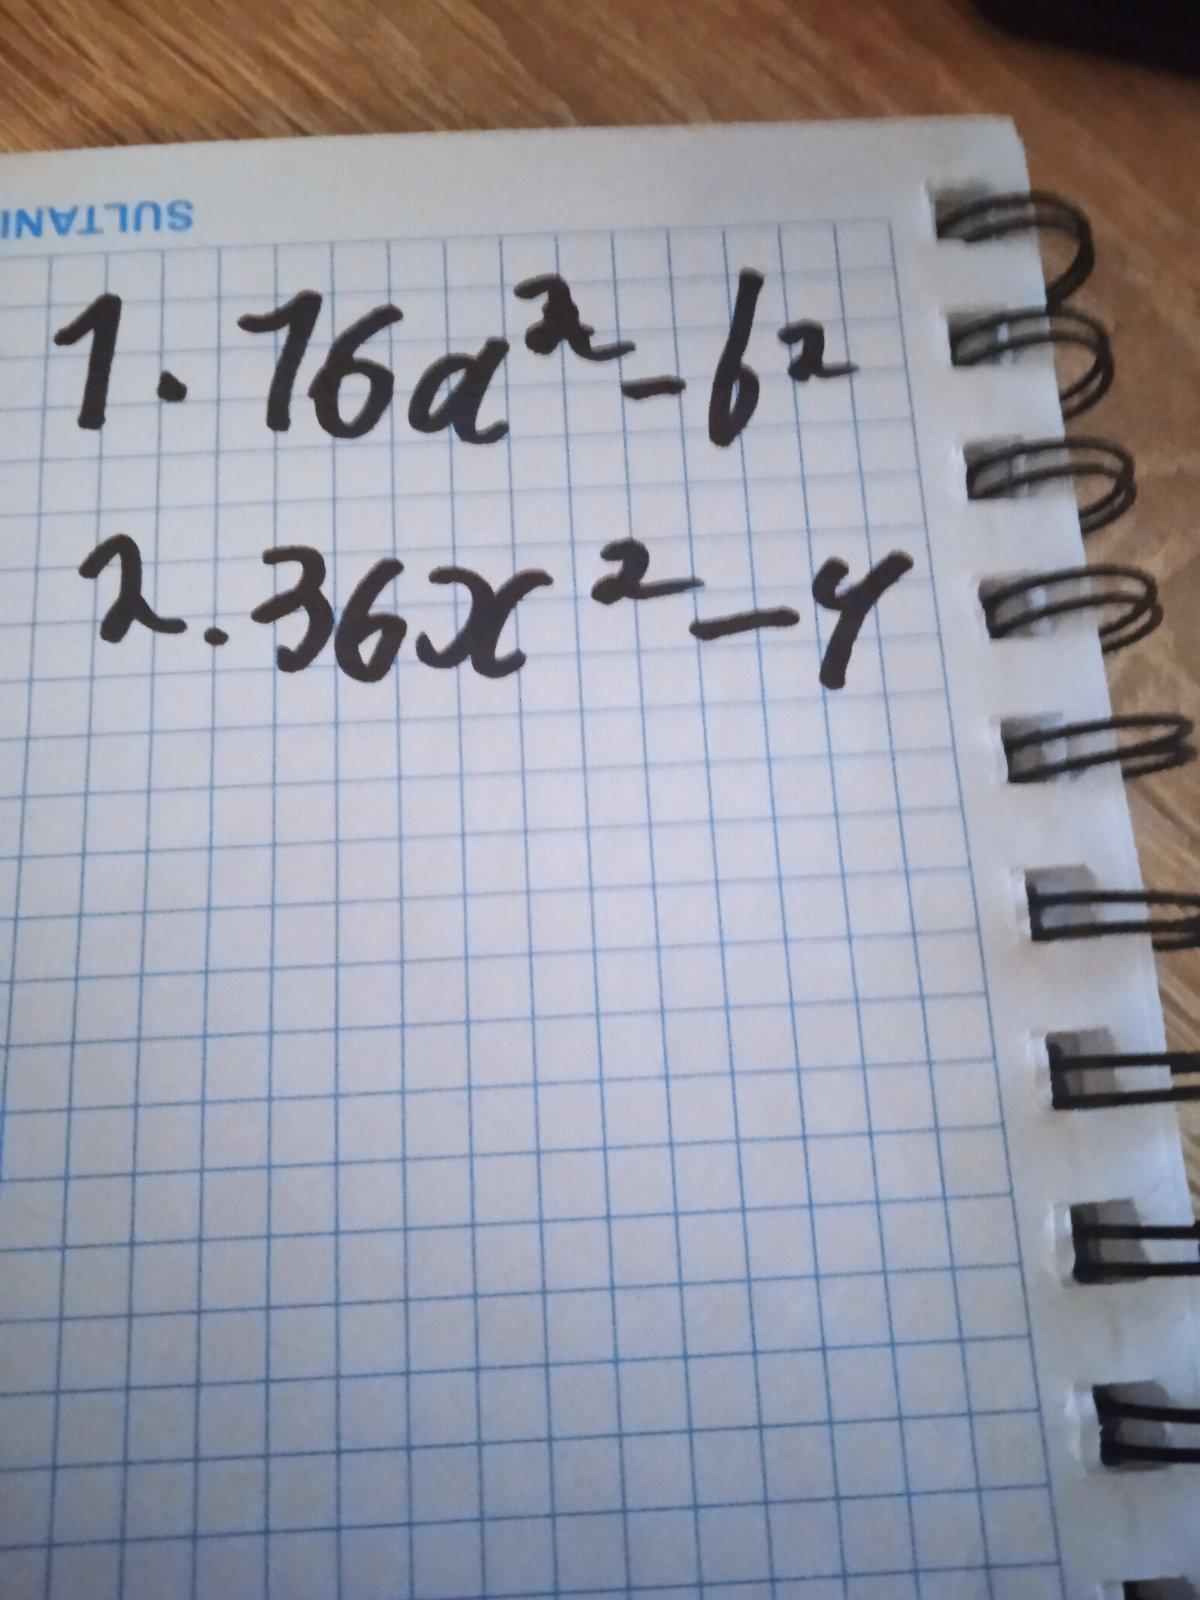 SULTANI
1. 16a² - b²
2. 36x² - 4